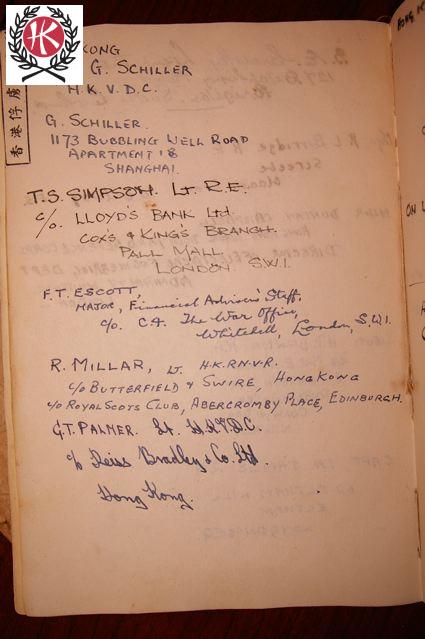 HK
香港俘虜
KONG
G. SCHILLER
H.K.V.D.C.
G. SCHILLER.
1173 BUBBLING WELL ROAD
APARTMENT 18
SHANGHAI.
T.S. SIMPSON. LT. R.E.
c/o. LLOYD'S BANK Ltd.
COX'S & KING'S BRANCH.
PALL MALL.
LONDON. S.W.1.
F.T. ESCOTT,
MAJOR, Financial Adviser's Staff,
c/o. C.4. The War Office,
Whitehall, London, S.W.1.
R. MILLAR, LT. H.K.R.N.V.R.
c/o BUTTERFIELD & SWIRE, HONGKONG
c/o ROYAL SCOTS CLUB, ABERCROMBY PLACE, EDINBURGH.
G.T. PALMER. Lt. H.K.V.D.C.
c/o Reiss Bradley & Co. Ltd.
Hong Kong.